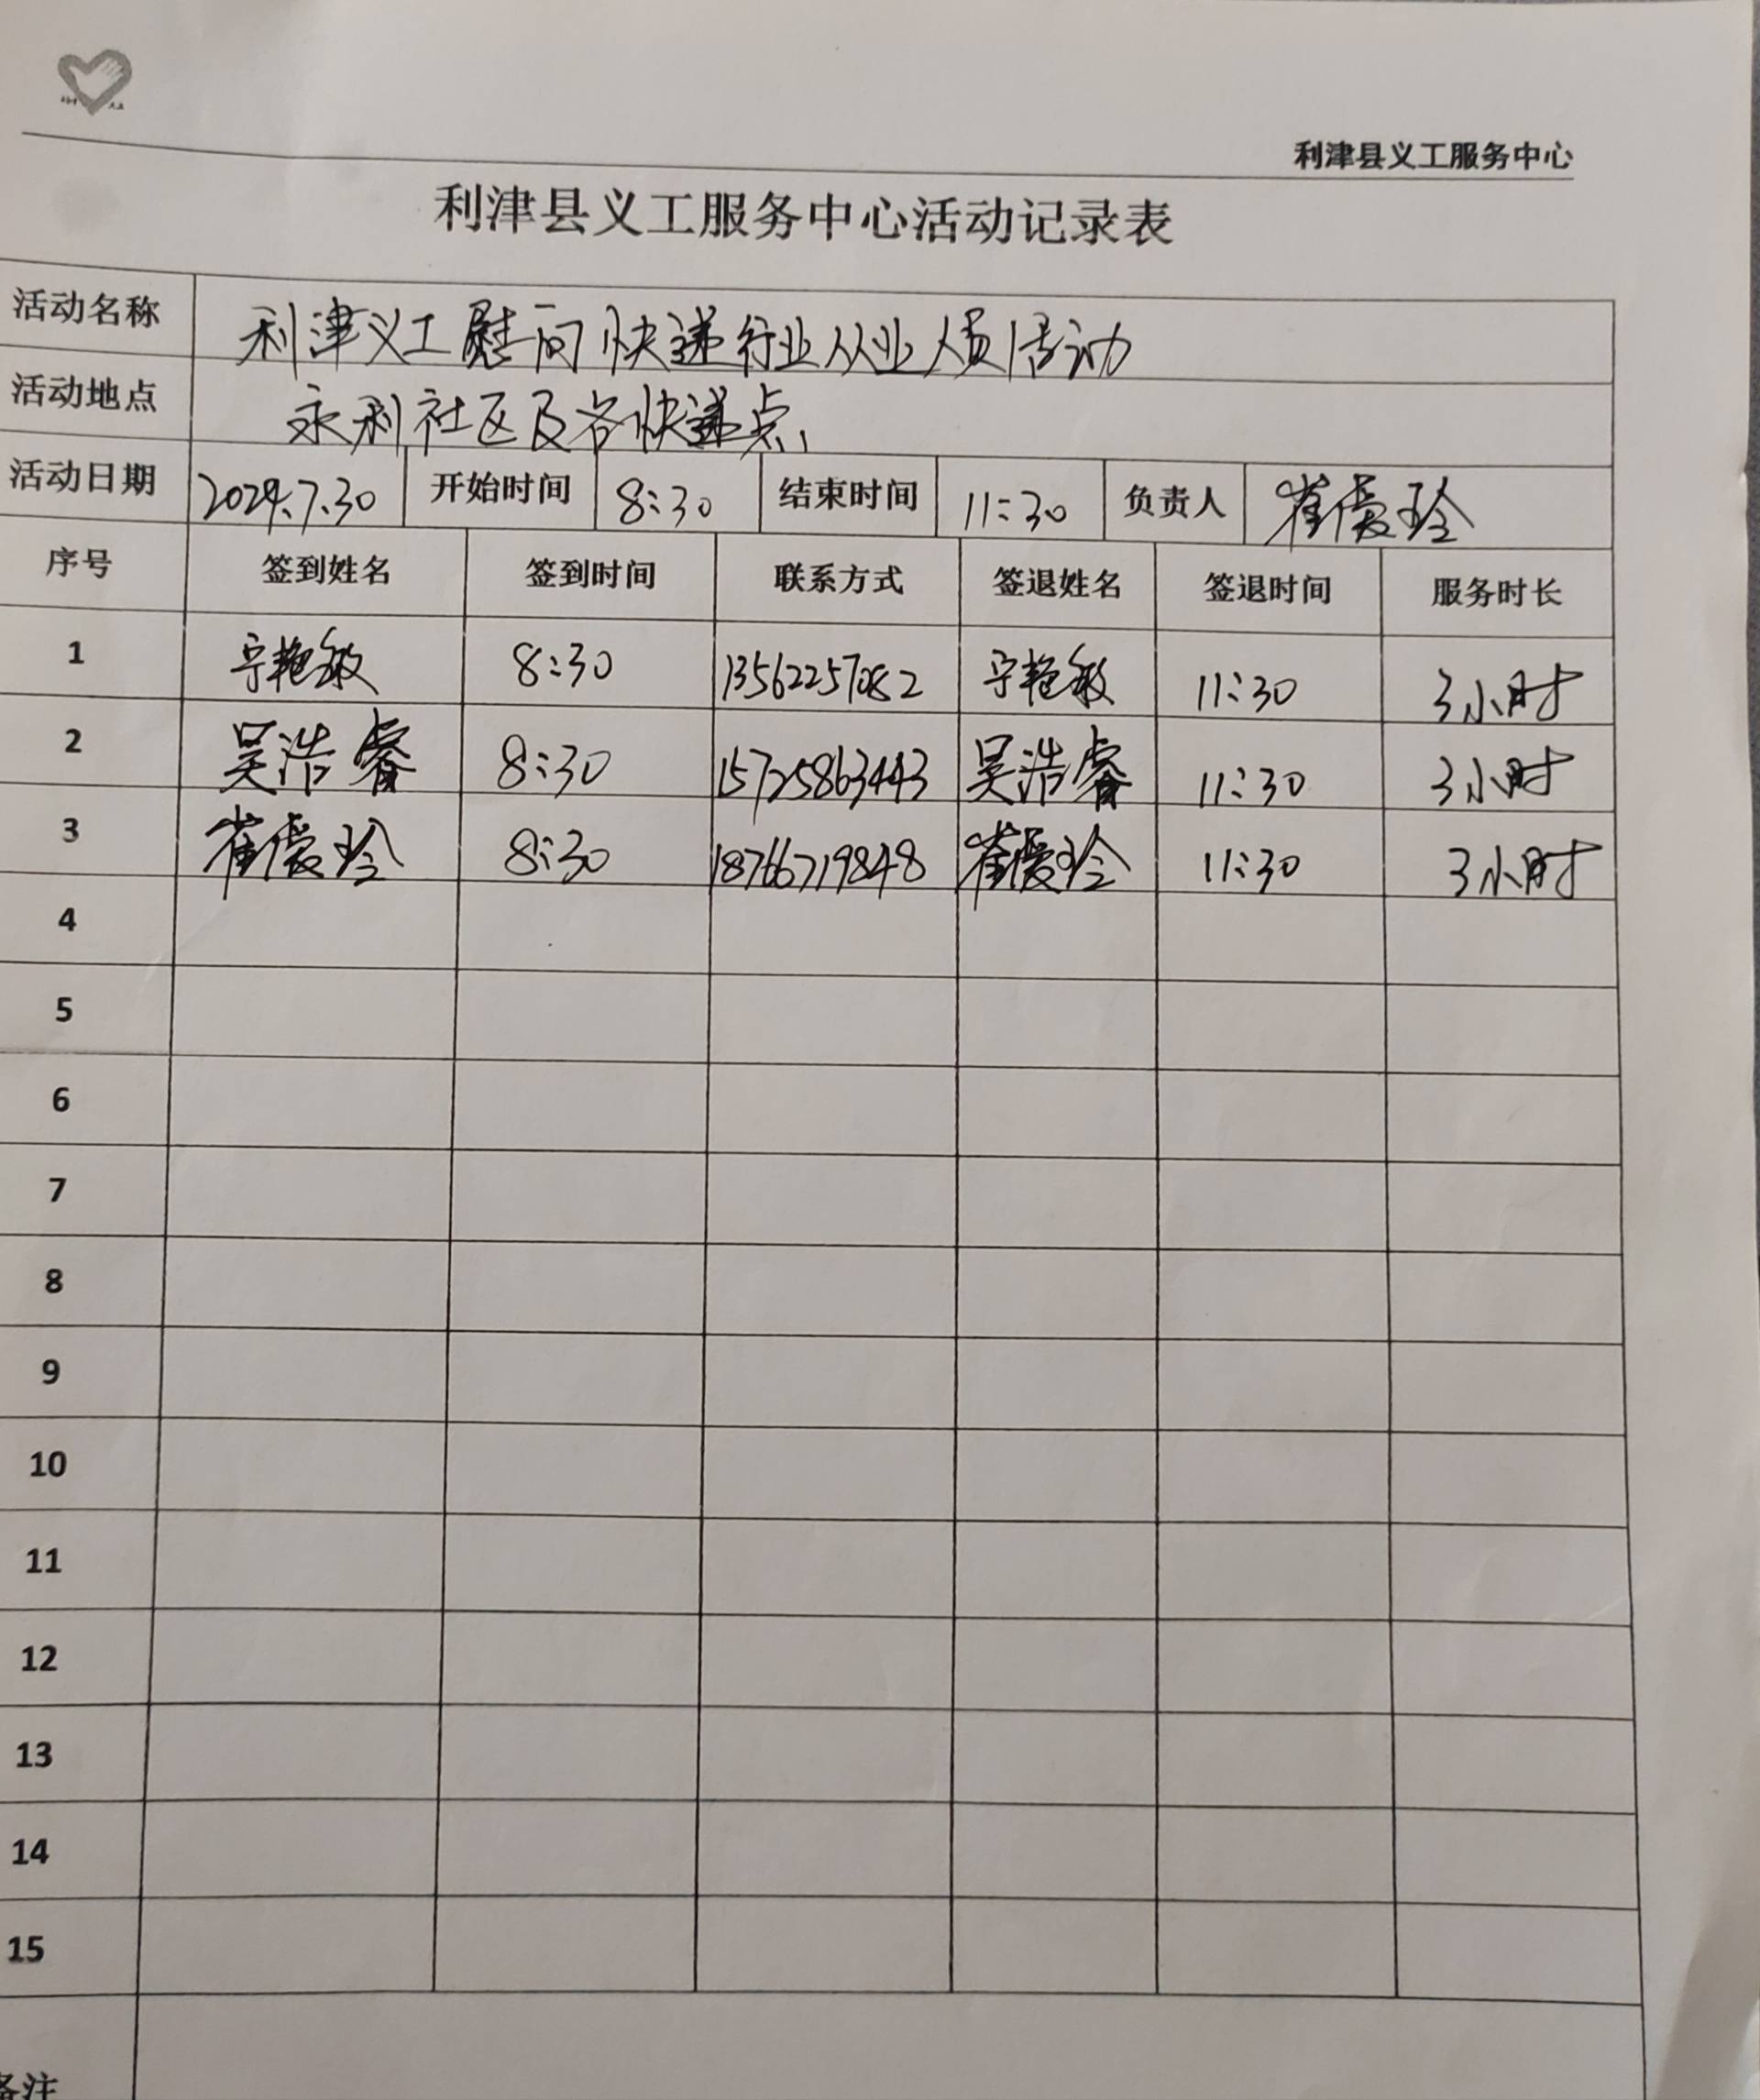 利津县义工服务中心
利津县义工服务中心活动记录表
活动名称 利津义工慰问快递行业从业人员活动
活动地点 永利社区及各快递点
活动日期 2024.7.30 开始时间 8:30 结束时间 11:30 负责人 崔爱玲
序号 签到姓名 签到时间 联系方式 签退姓名 签退时间 服务时长
1 宁艳敏 8:30 13562257082 宁艳敏 11:30 3小时
2 吴浩睿 8:30 15725863443 吴浩睿 11:30 3小时
3 崔爱玲 8:30 18766719848 崔爱玲 11:30 3小时
4
5
6
7
8
9
10
11
12
13
14
15
备注